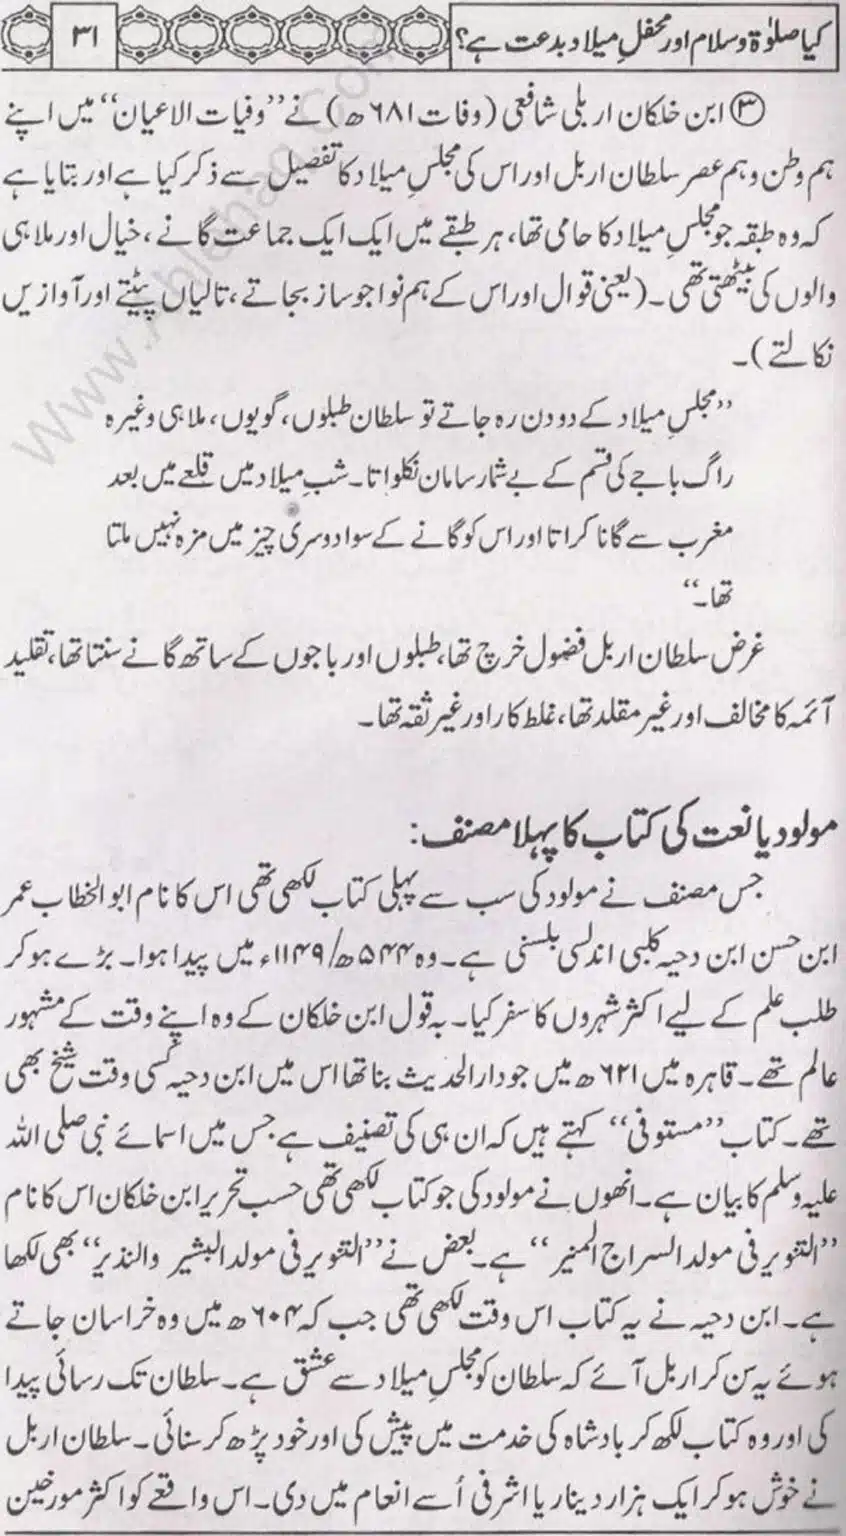 کیا صلوٰۃ و سلام اور محفلِ میلاد بدعت ہے؟ ۳۱
③ ابن خلکان اربلی شافعی (وفات ۶۸۱ھ) نے ”وفیات الاعیان“ میں اپنے
ہم وطن و ہم عصر سلطان اربل اور اس کی مجلسِ میلاد کا تفصیل سے ذکر کیا ہے اور بتایا ہے
کہ وہ طبقہ جو مجلسِ میلاد کا حامی تھا، ہر طبقے میں ایک ایک جماعت گانے، خیال اور ملاہی
والوں کی بیٹھتی تھی۔ (یعنی قوال اور اس کے ہم نوا جو ساز بجاتے، تالیاں پیٹتے اور آوازیں
نکالتے)۔
”مجلسِ میلاد کے دو دن رہ جاتے تو سلطان طبلوں، گویوں، ملاہی وغیرہ
راگ باجے کی قسم کے بے شمار سامان نکلواتا۔ شبِ میلاد میں قلعے میں بعد
مغرب سے گانا کراتا اور اس کو گانے کے سوا دوسری چیز میں مزہ نہیں ملتا
تھا۔“
غرض سلطان اربل فضول خرچ تھا، طبلوں اور باجوں کے ساتھ گانے سنتا تھا، تقلید
آئمہ کا مخالف اور غیر مقلد تھا، غلط کار اور غیر ثقہ تھا۔
مولود یا نعت کی کتاب کا پہلا مصنف:
جس مصنف نے مولود کی سب سے پہلی کتاب لکھی تھی اس کا نام ابوالخطاب عمر
ابن حسن ابن دحیہ کلبی اندلسی بلسنی ہے۔ وہ ۵۴۴ھ/۱۱۴۹ء میں پیدا ہوا۔ بڑے ہو کر
طلب علم کے لیے اکثر شہروں کا سفر کیا۔ بہ قول ابن خلکان کے وہ اپنے وقت کے مشہور
عالم تھے۔ قاہرہ میں ۶۲۱ھ میں جو دارالحدیث بنا تھا اس میں ابن دحیہ کسی وقت شیخ بھی
تھے۔ کتاب ”مستوفی“ کہتے ہیں کہ ان ہی کی تصنیف ہے جس میں اسمائے نبی صلی اللہ
علیہ وسلم کا بیان ہے۔ انھوں نے مولود کی جو کتاب لکھی تھی حسب تحریر ابن خلکان اس کا نام
”التنویر فی مولد السراج المنیر“ ہے۔ بعض نے ”التنویر فی مولد البشیر والنذیر“ بھی لکھا
ہے۔ ابن دحیہ نے یہ کتاب اس وقت لکھی تھی جب کہ ۶۰۴ھ میں وہ خراسان جاتے
ہوئے یہ سن کر اربل آئے کہ سلطان کو مجلسِ میلاد سے عشق ہے۔ سلطان تک رسائی پیدا
کی اور وہ کتاب لکھ کر بادشاہ کی خدمت میں پیش کی اور خود پڑھ کر سنائی۔ سلطان اربل
نے خوش ہو کر ایک ہزار دینار یا اشرفی اُسے انعام میں دی۔ اس واقعے کو اکثر مورخین